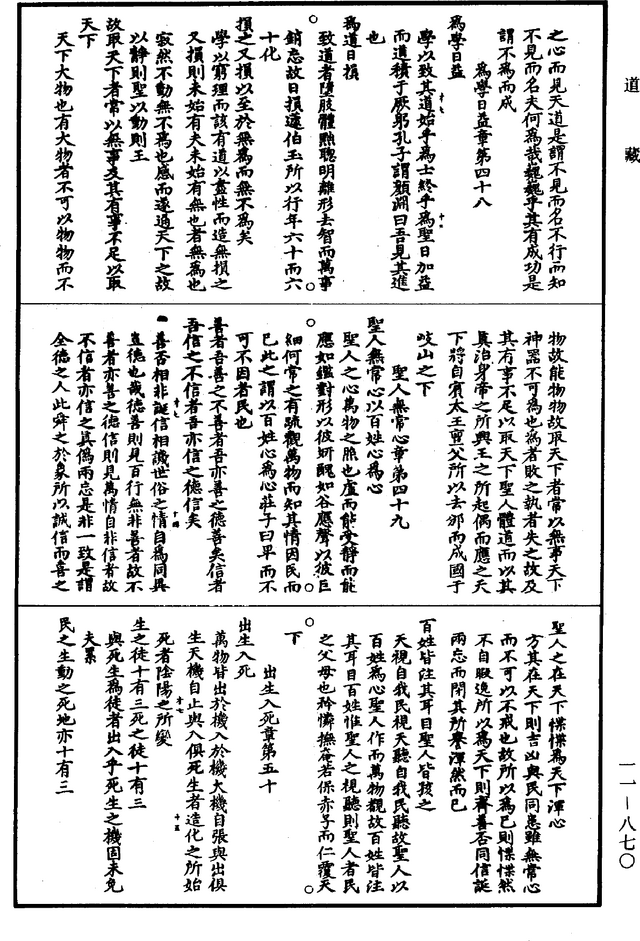 道藏
之心而見天道是謂不見而名不行而知
不見而名夫何為哉巍巍乎其有成功是
謂不為而成
為學日益章第四十八
為學日益
學以致其道始乎為士終乎為聖日加益
而道積于厥躬孔子謂顏淵曰吾見其進
也
為道日損
致道者墮肢體黜聰明離形去智而萬事
銷忘故日損蘧伯玉所以行年六十而六
十化
損之又損以至於無為而無不為矣
學以窮理而該有道以盡性而造無損之
又損則未始有夫未始有無也者無為也
寂然不動無不為也感而遂通天下之故
以靜則聖以動則王
故取天下者常以無事及其有事不足以取
天下
天下大物也有大物者不可以物物而不
物故能物物故取天下者常以無事天下
神器不可為也為者敗之執者失之故及
其有事不足以取天下聖人體道而以其
真治身帝之所興王之所起偶而應之天
下將自賓太王亶父所以去邠而成國于
岐山之下
聖人無常心章第四十九
聖人無常心以百姓心為心
聖人之心萬物之照也虛而能受靜而能
應如鑑對形以彼妍醜如谷應聲以彼巨
細何常之有疏觀萬物而知其情因民而
已此之謂以百姓心為心莊子曰卑而不
可不因者民也
善者吾善之不善者吾亦善之德善矣信者
吾信之不信者吾亦信之德信矣
善否相非誕信相譏世俗之情自為同異
豈德也哉德善則見百行無非善者故不
善者亦善之德信則見萬情自非信者故
不信者亦信之真偽兩忘是非一致是謂
全德之人此舜之於象所以誠信而喜之
聖人之在天下惵惵為天下渾心
方其在天下則吉凶與民同患雖無常心
而不可以不戒也故所以為己則惵惵然
不自暇逸所以為天下則齊善否同信誕
兩忘而閉其所譽渾然而已
百姓皆注其耳目聖人皆孩之
天視自我民視天聽自我民聽故聖人以
百姓為心聖人作而萬物覩故百姓皆注
其耳目百姓惟聖人之視聽則聖人者民
之父母也矜憐撫奄若保赤子而仁覆天
下
出生入死章第五十
出生入死
萬物皆出於機入於機大機自張與出俱
生天機自止與入俱死生者造化之所始
死者陰陽之所變
生之徒十有三死之徒十有三
與死生為徒者出入乎死生之機固未免
夫累
民之生動之死地亦十有三
一一—八七〇